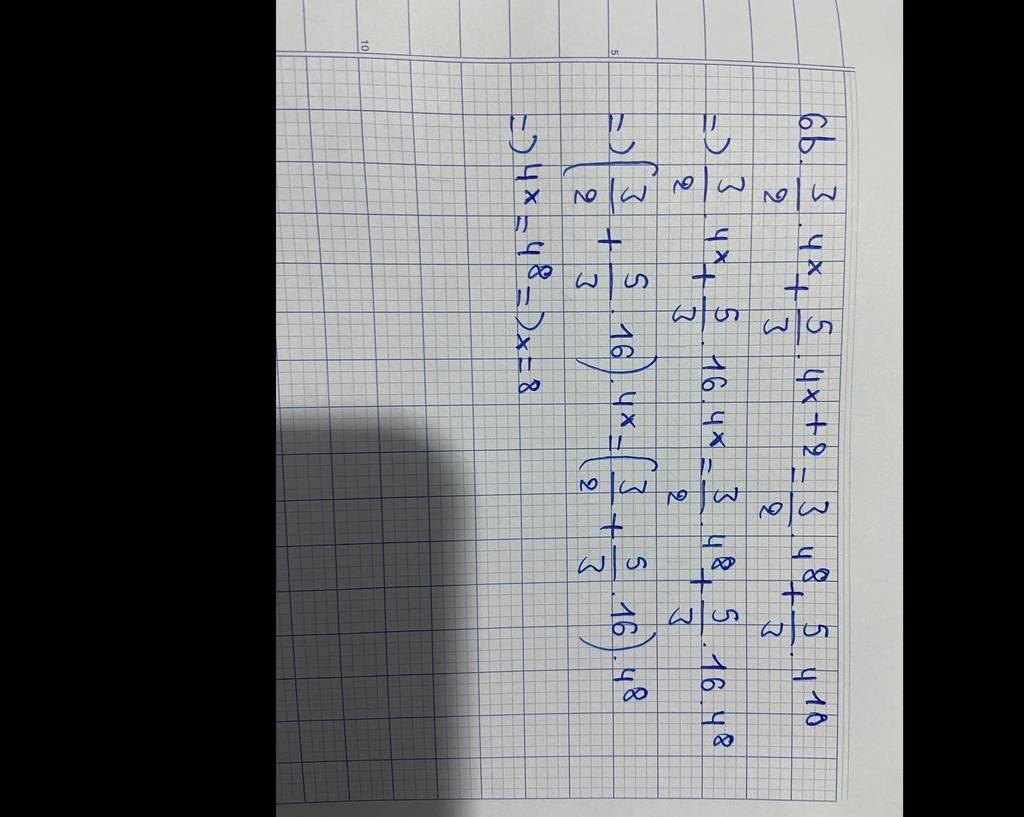 6b. 3/2 . 4^x + 5/3 . 4^x+2 = 3/2 . 4^8 + 5/3 . 4^10
=> 3/2 . 4^x + 5/3 . 16 . 4^x = 3/2 . 4^8 + 5/3 . 16 . 4^8
=> (3/2 + 5/3 . 16) . 4^x = (3/2 + 5/3 . 16) . 4^8
=> 4^x = 4^8 => x = 8
5
10